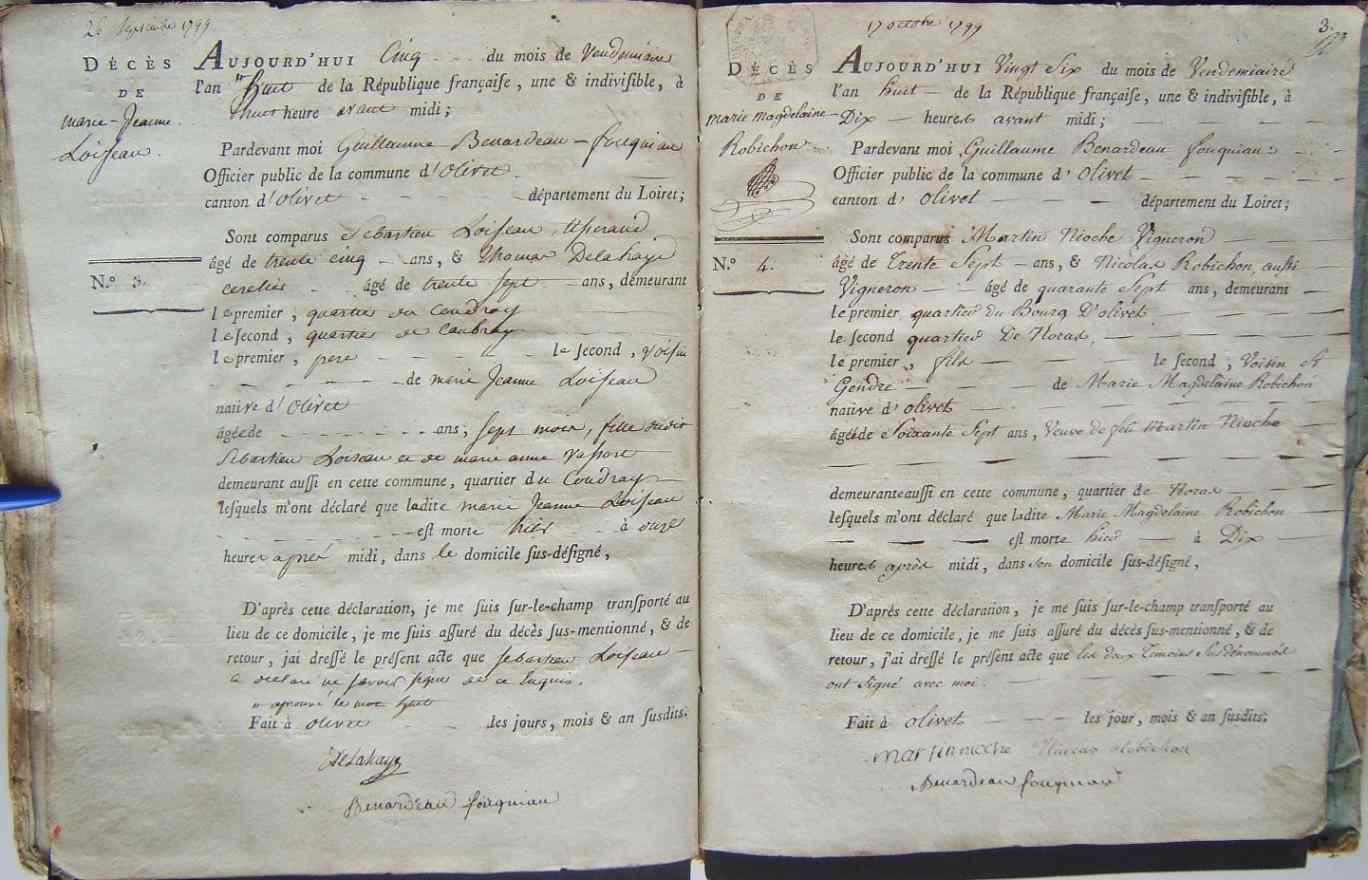 26 Septembre 1799
DÉCÈS
DE
marie-Jeanne
Loiseau.
N.º 3.
AUJOURD'HUI Cinq du mois de Vendemiaire
l'an huit de la République françaiſe, une & indiviſible, à
huit heure avant midi;
Pardevant moi Guillaume Benardeau-fouquiau
Officier public de la commune d'Olivet
canton d'Olivet département du Loiret;
Sont comparus Sebastien Loiseau,
âgé de trente cinq ans, & Thomas Delahaye
âgé de trente sept ans, demeurant
le premier, quartier du Coudray
le ſecond, quartier de
le premier, pere le ſecond, voisin
de marie Jeanne Loiseau
native d'Olivet
âgée de ans, sept mois, fille dudit
Sebastien Loiseau et de marie anne
demeurant auſſi en cette commune, quartier du Coudray
leſquels m'ont déclaré que ladite marie Jeanne Loiseau
eſt morte hier à onze
heures après midi, dans le domicile ſus-déſigné,
D'après cette déclaration, je me ſuis ſur-le-champ tranſporté au
lieu de ce domicile, je me ſuis aſſuré du décès ſus-mentionné, & de
retour, j'ai dreſſé le préſent acte que sebastien Loiseau
a declaré ne savoir signer de ce Enquis.
approuvé le mot huit
Fait à olivet les jours, mois & an ſuſdits.
Delahaye
Benardeau fouquiau
17 octobre 1799
3.
DÉCÈS
DE
marie magdelaine
Robichon
N.º 4.
AUJOURD'HUI Vingt Six du mois de Vendemiaire
l'an huit de la République françaiſe, une & indiviſible, à
Dix heures avant midi;
Pardevant moi Guillaume Benardeau fouquiau
Officier public de la commune d'Olivet
canton d'Olivet département du Loiret;
Sont comparus Martin Nioche Vigneron
âgé de Trente Sept ans, & Nicolas Robichon, aussi
Vigneron âgé de quarante Sept ans, demeurant
le premier quartier du Bourg D'olivet
le ſecond quartier De Noras,
le premier, fils le ſecond, Voisin et
Gendre de Marie Magdelaine Robichon
native d'olivet
âgée de Soixante Sept ans, Veuve de feu Martin Nioche
demeurante auſſi en cette commune, quartier de Noras
leſquels m'ont déclaré que ladite Marie Magdelaine Robichon
eſt morte hier à Dix
heures après midi, dans son domicile ſus-déſigné,
D'après cette déclaration, je me ſuis ſur-le-champ tranſporté au
lieu de ce domicile, je me ſuis aſſuré du décès ſus-mentionné, & de
retour, j'ai dreſſé le préſent acte que les deux Temoins Sus dénommés
ont Signé avec moi.
Fait à olivet les jour, mois & an ſuſdits.
martin nioche Nicolas Robichon
Benardeau fouquiau